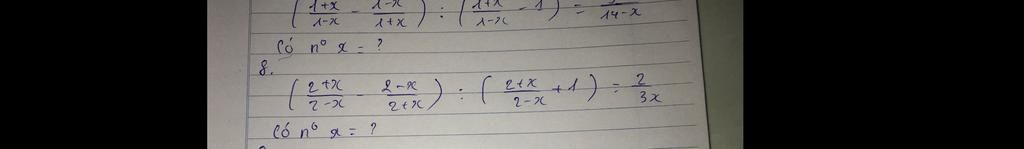 (1+x/1-x - 1-x/1+x) : (1+x/1-x - 1) = /14-x
Có nº x = ?
8.
(2+x/2-x - 2-x/2+x) : (2+x/2-x + 1) = 2/3x
Có nº x = ?